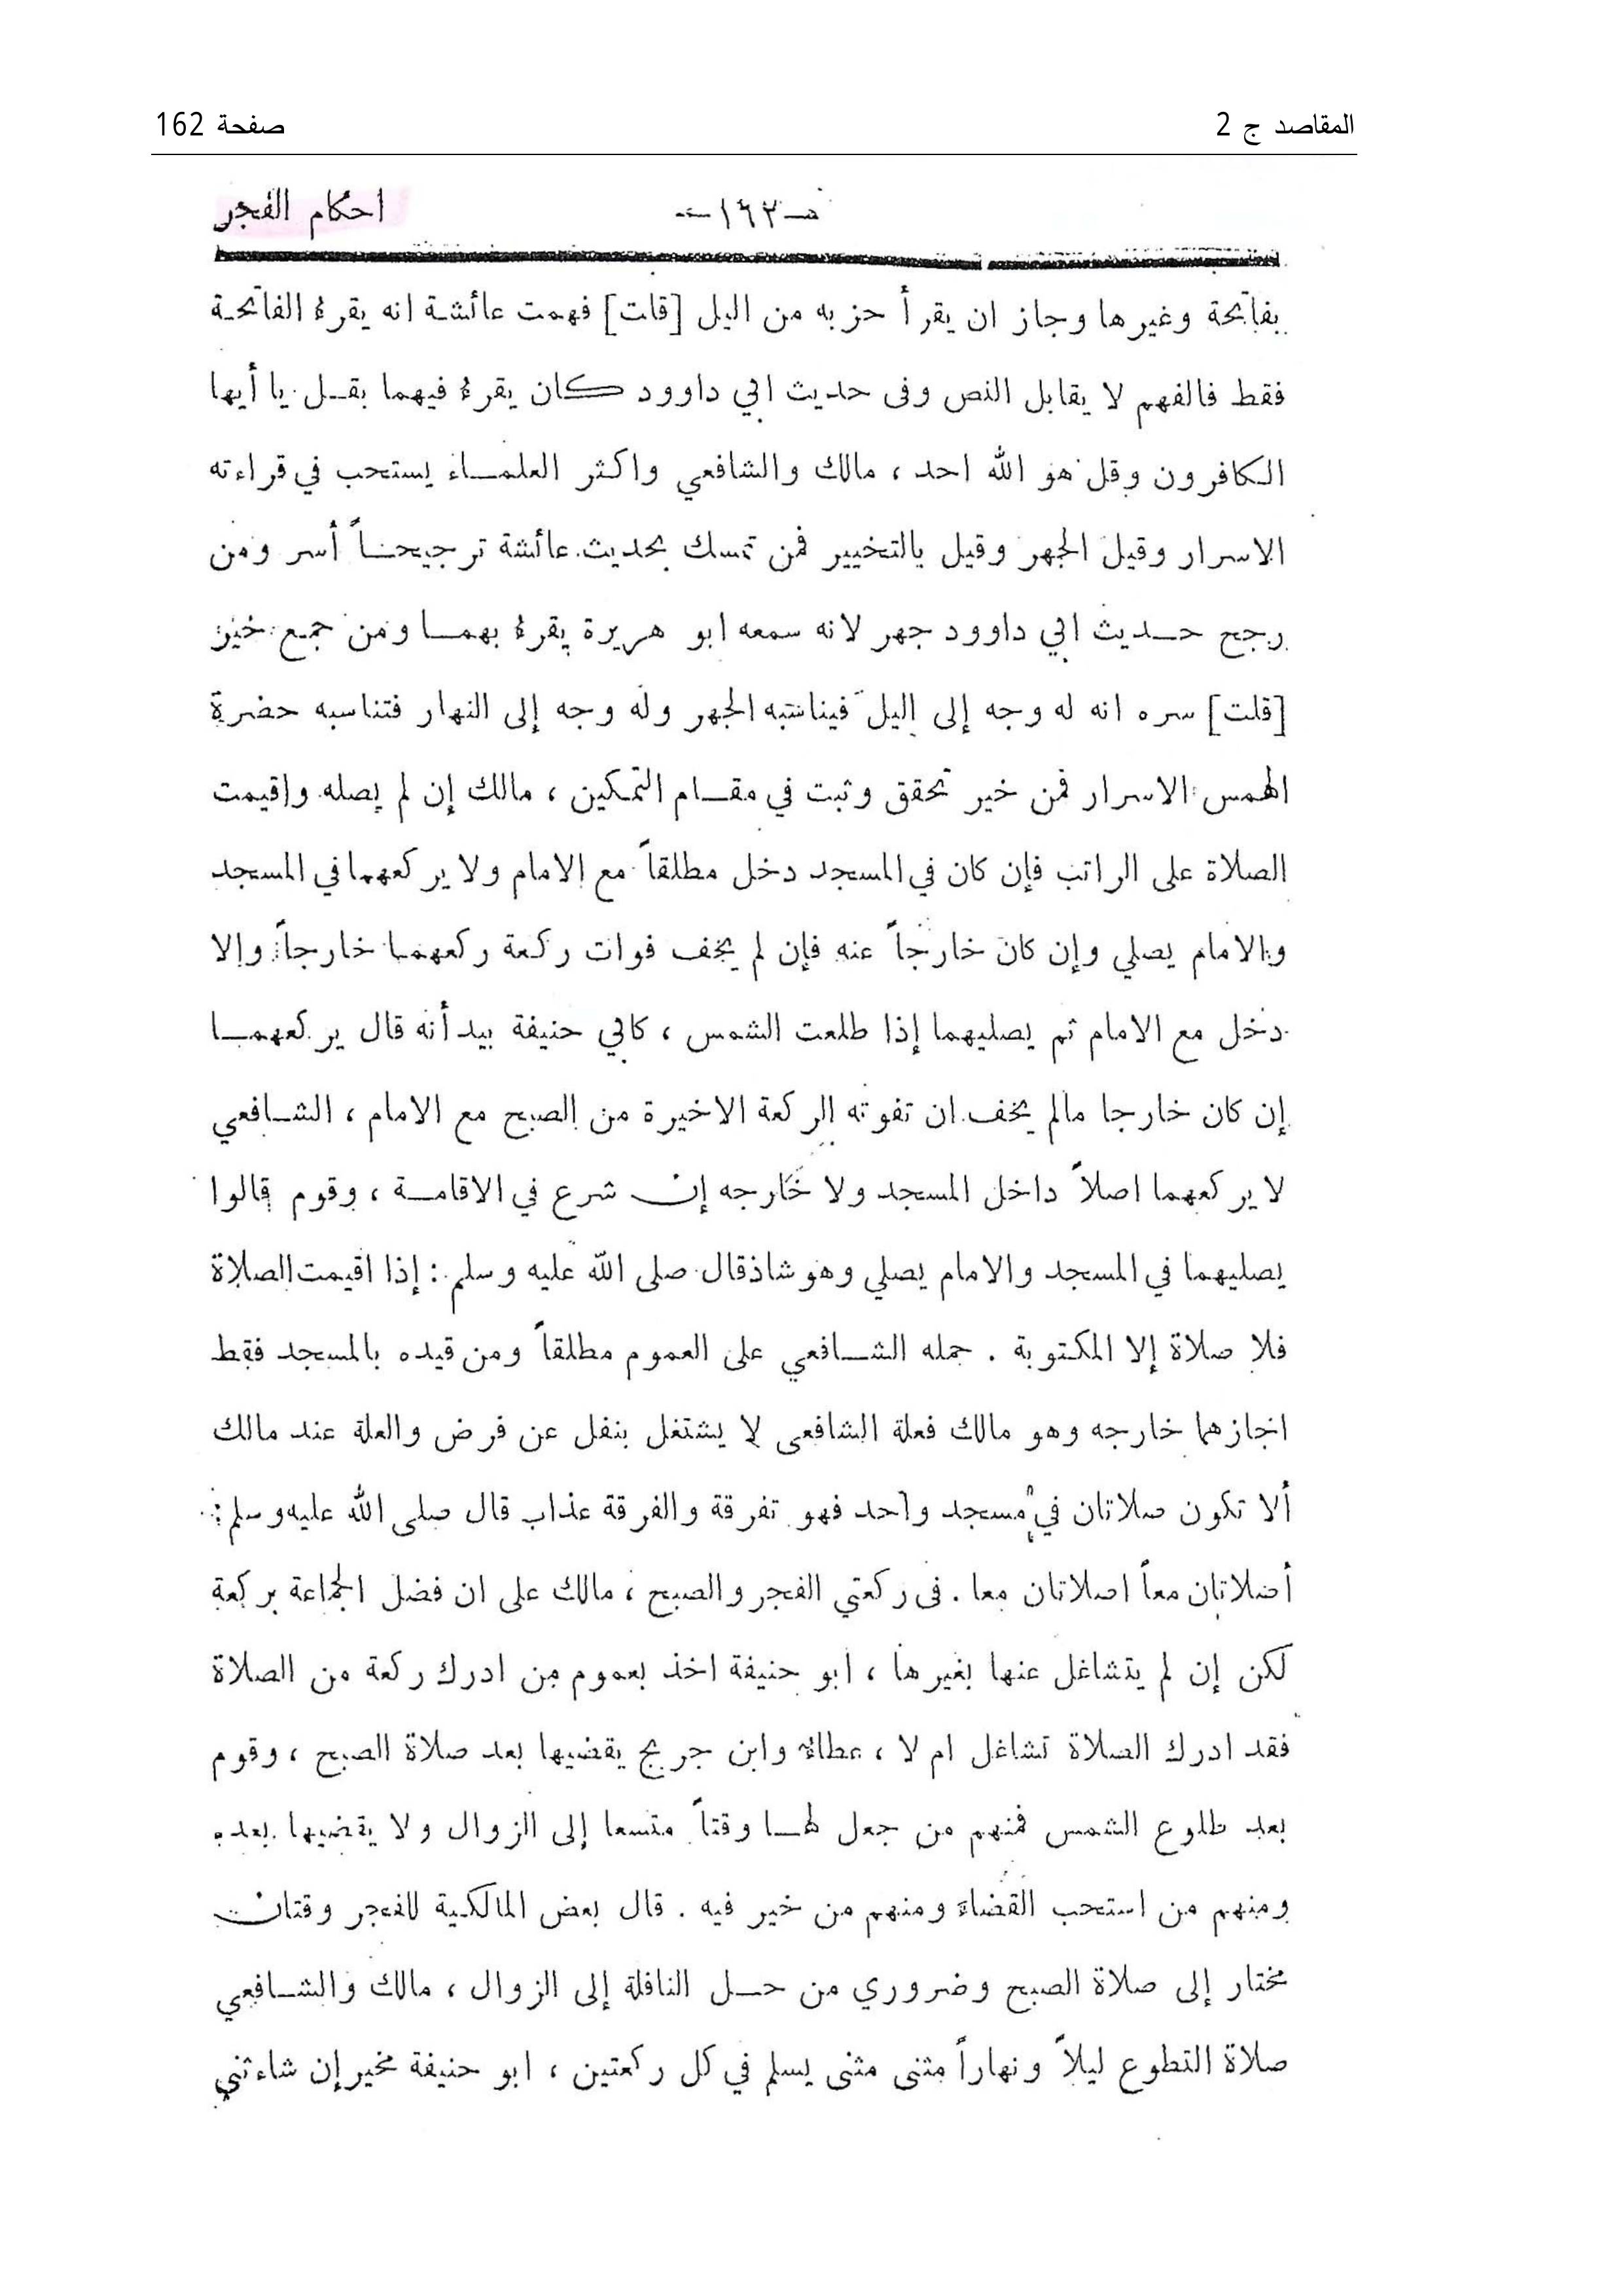 المقاصد ج 2
صفحة 162
-١٦٢-
احكام الفجر
بفاتحة وغيرها وجاز ان يقرأ حزبه من اليل [قلت] فهمت عائشة انه يقرء الفاتحة
فقط فالفهم لا يقابل النص وفى حديث ابي داوود كان يقرء فيهما بقل يا أيها
الكافرون وقل هو الله احد ، مالك والشافعي واكثر العلماء يستحب في قراءته
الاسرار وقيل الجهر وقيل بالتخيير فمن تمسك بحديث عائشة ترجيحاً أسر ومن
رجح حديث ابي داوود جهر لانه سمعه ابو هريرة يقرء بهما ومن جمع خير
[قلت] سره انه له وجه إلى اليل فيناسبه الجهر وله وجه إلى النهار فتناسبه حضرة
الهمس الاسرار فمن خير تحقق وثبت في مقام التمكين ، مالك إن لم يصله واقيمت
الصلاة على الراتب فإن كان في المسجد دخل مطلقاً مع الامام ولا يركعهما في المسجد
والامام يصلي وإن كان خارجاً عنه فإن لم يخف فوات ركعة ركعهما خارجاً وإلا
دخل مع الامام ثم يصليهما إذا طلعت الشمس ، كابي حنيفة بيد أنه قال يركعهما
إن كان خارجا مالم يخف ان تفوته الركعة الاخيرة من الصبح مع الامام ، الشافعي
لا يركعهما اصلاً داخل المسجد ولا خارجه إن شرع في الاقامة ، وقوم قالوا
يصليهما في المسجد والامام يصلي وهو شاذ قال صلى الله عليه وسلم : إذا اقيمت الصلاة
فلا صلاة إلا المكتوبة . حمله الشافعي على العموم مطلقاً ومن قيده بالمسجد فقط
اجازهما خارجه وهو مالك فعلة الشافعى لا يشتغل بنفل عن فرض والعلة عند مالك
ألا تكون صلاتان في مسجد واحد فهو تفرقة والفرقة عذاب قال صلى الله عليه وسلم :
أصلاتان معاً اصلاتان معا . فى ركعتي الفجر والصبح ، مالك على ان فضل الجماعة بركعة
لكن إن لم يتشاغل عنها بغيرها ، ابو حنيفة اخذ بعموم من ادرك ركعة من الصلاة
فقد ادرك الصلاة تشاغل ام لا ، عطاء وابن جريج يقضيها بعد صلاة الصبح ، وقوم
بعد طلوع الشمس فمنهم من جعل لها وقتاً متسعا إلى الزوال ولا يقضيها بعده
ومنهم من استحب القضاء ومنهم من خير فيه . قال بعض المالكية للفجر وقتان
مختار إلى صلاة الصبح وضروري من حل النافلة إلى الزوال ، مالك والشافعي
صلاة التطوع ليلاً ونهاراً مثنى مثنى يسلم في كل ركعتين ، ابو حنيفة مخير إن شاء ثني